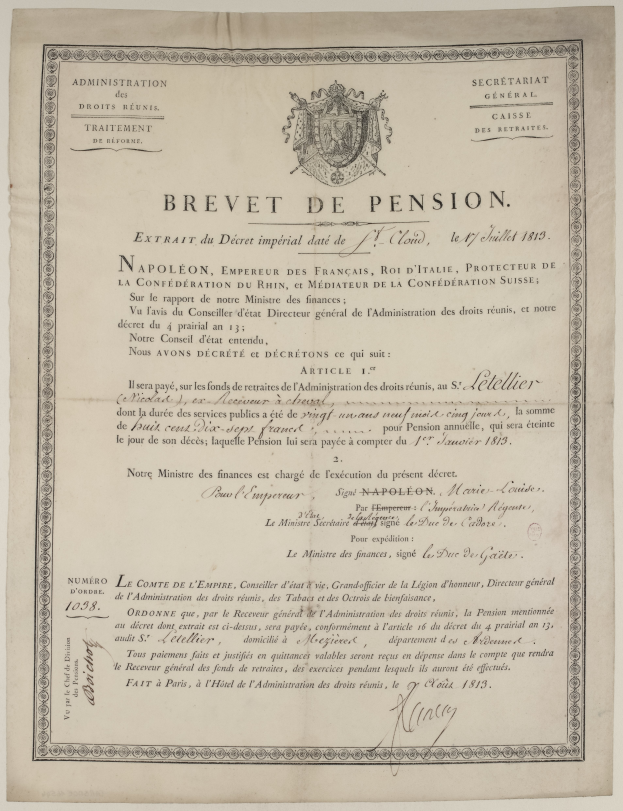 ADMINISTRATION
des
DROITS RÉUNIS.
TRAITEMENT
DE RÉFORME.
SECRÉTARIAT
GÉNÉRAL.
CAISSE
DES RETRAITES.
BREVET DE PENSION.
EXTRAIT du Décret impérial daté de St. Cloud, le 17 Juillet 1813.
NAPOLÉON, EMPEREUR DES FRANÇAIS, ROI D'ITALIE, PROTECTEUR DE
LA CONFÉDÉRATION DU RHIN, ET MÉDIATEUR DE LA CONFÉDÉRATION SUISSE;
Sur le rapport de notre Ministre des finances;
Vu l'avis du Conseiller d'état Directeur général de l'Administration des droits réunis, et notre
décret du 4 prairial an 13;
Notre Conseil d'état entendu,
Nous AVONS DÉCRÉTÉ et DÉCRÉTONS ce qui suit:
ARTICLE 1.er
Il sera payé, sur les fonds de retraites de l'Administration des droits réunis, au S.r Letellier
(Nicolas), ex Receveur à cheval,
dont la durée des services publics a été de vingt un ans neuf mois cinq jours, la somme
de huit cent dix-sept francs, pour Pension annuelle, qui sera éteinte
le jour de son décès; laquelle Pension lui sera payée à compter du 1er Janvier 1813.
2.
Notre Ministre des finances est chargé de l'exécution du présent décret.
Pour l'Empereur, Signé NAPOLÉON. Marie Louise.
Par l'Empereur: l'Impératrice Régente,
Le Ministre Secrétaire d'état signé le Duc de Cadore.
Pour expédition:
Le Ministre des finances, signé le Duc de Gaëte.
NUMÉRO
D'ORDRE.
1038.
Vu par le Chef de Division
des Pensions.
LE COMTE DE L'EMPIRE, Conseiller d'état à vie, Grand-officier de la Légion d'honneur, Directeur général
de l'Administration des droits réunis, des Tabacs et des Octrois de bienfaisance,
ORDONNE que, par le Receveur général de l'Administration des droits réunis, la Pension mentionnée
au décret dont extrait est ci-dessus, sera payée, conformément à l'article 16 du décret du 4 prairial an 13,
audit S.r Letellier, domicilié à Mezières, département des Ardennes.
Tous paiemens faits et justifiés en quittances valables seront reçus en dépense dans le compte que rendra
le Receveur général des fonds de retraites, des exercices pendant lesquels ils auront été effectués.
FAIT à Paris, à l'Hôtel de l'Administration des droits réunis, le 9 Août 1813.